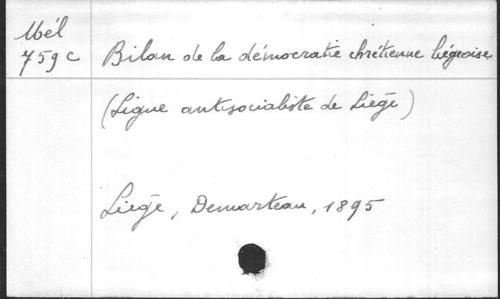 Mél
759 c
Bilan de la démocratie chrétienne liégeoise
(Ligue antisocialiste de Liège)
Liège, Demarteau, 1895